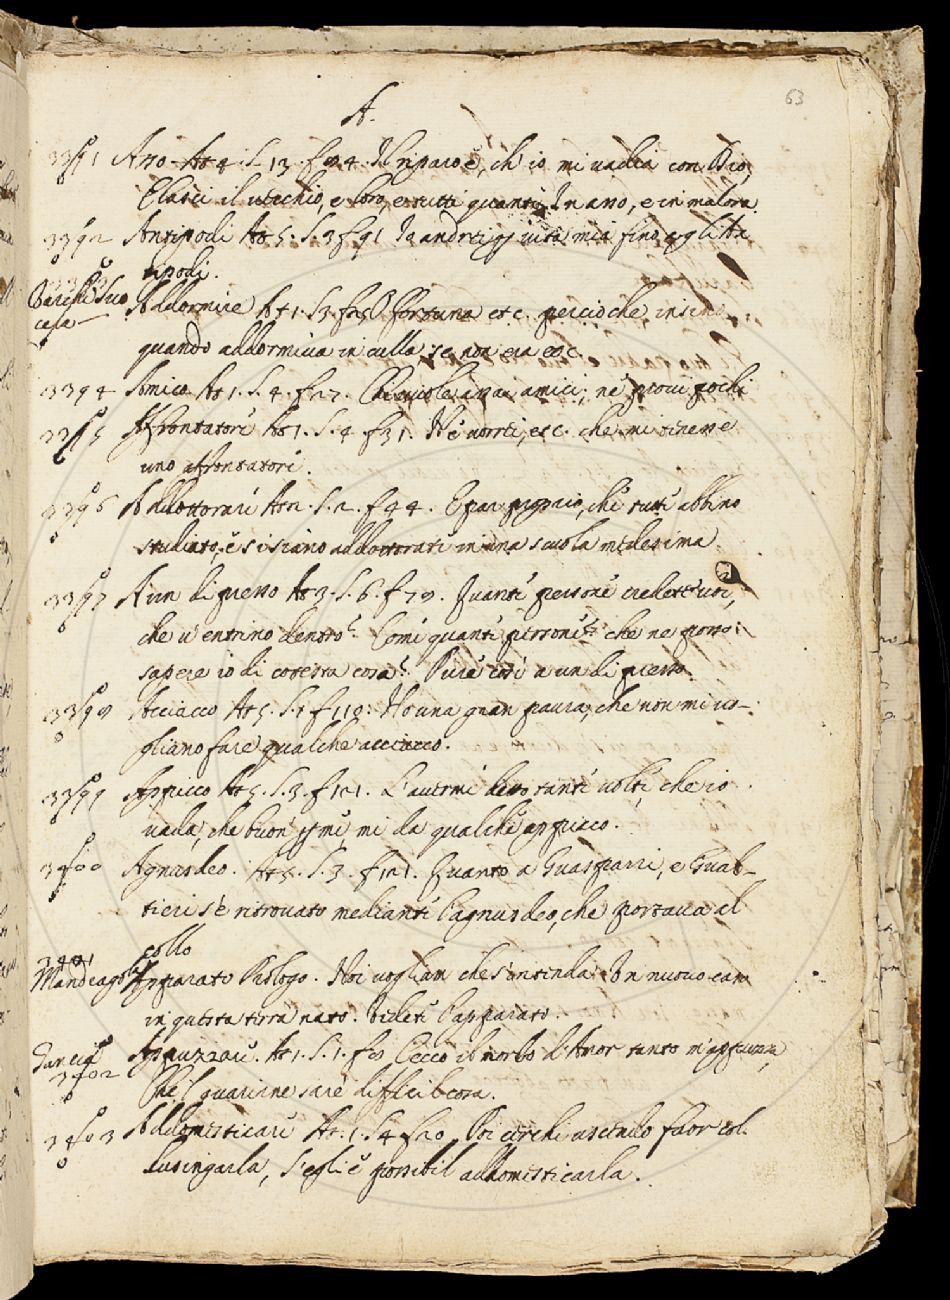 63
A.
3391 Ano. At 4. S. 13. f 94. Il ripaio è, ch' io mi vadia con Dio,
E lasci il vecchio, e loro, e tutti quanti In ano, e in malora.
3392 Antipodi At 5. S. 3 f 91 Io andrei p vita mia fino agli An
tipodi.
Addormire At 1. S. 3. Fortuna etc. percioche insino
quando addormiva in culla se non era eoc.
3394 Amico At 1. S. 4. f 27. Chi vuole assai amici, ne provi pochi
3395 Affrontatori At 1. S. 4. f 31. Nè vorrei, etc. che mi tenesse
uno afrontatori.
3396 Addottorari At 2. S. 2. f 44. E par proprio, che tutti abbino
studiato, e si siano addottorati in una scuola medesima.
3397 A un di presso At 3. S. 6. f 79. Quanti persone credetti voi,
che v' entrino dentro? Come quanti persone? che ne posso
sapere io di cotesta cosa? Pure così a un di presso.
3398 Acciacco At 5. S. 1 f 118. Ho una gran paura, che non mi vo-
gliano fare qualche acciacco.
3399 Appicco At 5. S. 3. f 121. L' avermi detto tanti volti, che io
vada, che buon p me, mi da qualche appicco.
3400 Agnusdeo. At 5. S. 3. f 121. Quanto a Guasparri, e Gual-
tieri s' è ritrovato medianti l' agnusdeo, che portava al
collo
3401
Mandragola Apparato Prologo. Noi voglian che s' intenda Un nuovo caso
in questa terra nato. Vedeti l' apparato.
Appuzzari. At 1. S. 1. f 9 Cecco il morbo d' Amor tanto m' appuzza,
3402 Che 'l guarirne sare' difficil cosa.
3403 Addomesticari At. 1. S 4 f 20 Poi cerchi uscendo fuor col
lusingarla, S' egli è possibil addomesticarla.